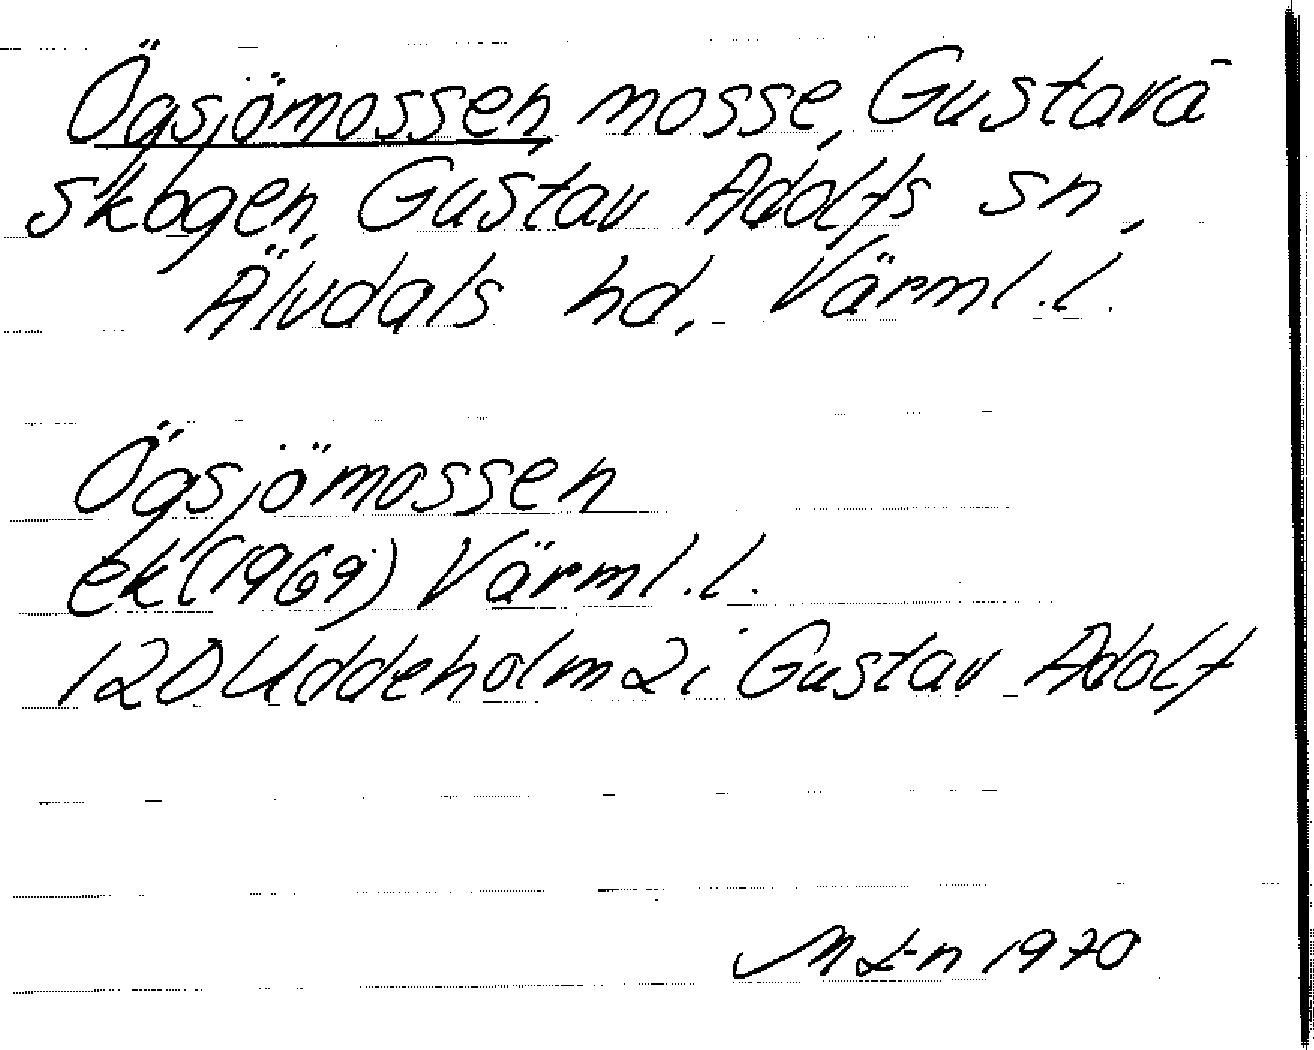 Ögsjömossen, mosse, Gustava
skogen, Gustav Adolfs sn,
Älvdals hd, Värml.l.
Ögsjömossen
ek (1969) Värml.l.
12D Uddeholm 2i Gustav Adolf
1970